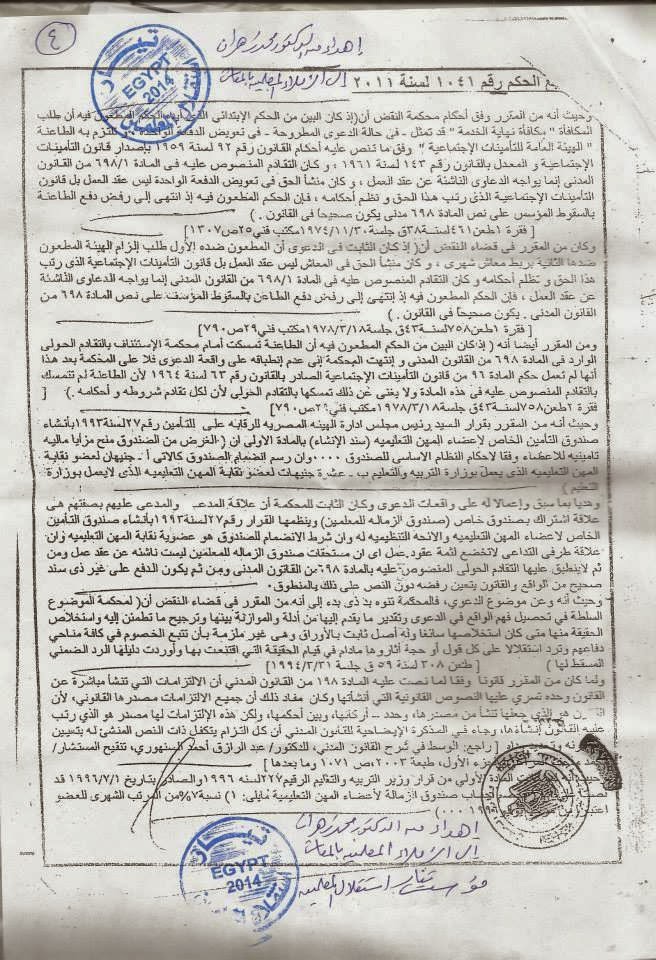 ٤
إهداء من الدكتور محمد زهران
إلى الزملاء المطالبين بالمعاش
تيار
EGYPT
2014
استقلال المعلمين
تابع الحكم رقم ١٠٤١ لسنة ٢٠١١
وحيث أنه من المقرر وفق أحكام محكمة النقض أن( إذ كان البين من الحكم الإبتدائى الذى أيده الحكم المطعون فيه أن طلب
المكافأة " مكافأة نهاية الخدمة " قد تمثل - في حالة الدعوى المطروحة - فى تعويض الدفعة الواحدة وتلتزم به الطاعنة
" الهيئة العامة للتأمينات الإجتماعية " وفق ما تنص عليه أحكام القانون رقم ٩٢ لسنة ١٩٥٩ بإصدار قانون التأمينات
الإجتماعية و المعدل بالقانون رقم ١٤٣ لسنة ١٩٦١ ، وكان التقادم المنصوص عليه فى المادة ٦٩٨/١ من القانون
المدنى إنما يواجه الدعاوى الناشئة عن عقد العمل ، و كان منشأ الحق فى تعويض الدفعة الواحدة ليس عقد العمل بل قانون
التأمينات الإجتماعية الذى رتب هذا الحق و نظم أحكامه ، فإن الحكم المطعون فيه إذ انتهى إلى رفض دفع الطاعنة
بالسقوط المؤسس على نص المادة ٦٩٨ مدنى يكون صحيحاً فى القانون . )
[ فقرة ١طعن ٤٦١لسنة ٣٨ق جلسة ١٩٧٤/١١/٣٠مكتب فني ٢٥ص ١٣٠٧ ]
وكان من المقرر في قضاء النقض أن( إذ كان الثابت فى الدعوى أن المطعون ضده الأول طلب إلزام الهيئة المطعون
ضدها الثانية بربط معاش شهرى ، و كان منشأ الحق فى المعاش ليس عقد العمل بل قانون التأمينات الإجتماعية الذى رتب
هذا الحق و نظم أحكامه وكان التقادم المنصوص عليه فى المادة ٦٩٨/١ من القانون المدنى إنما يواجه الدعاوى الناشئة
عن عقد العمل ، فإن الحكم المطعون فيه إذ إنتهى إلى رفض دفع الطاعن بالسقوط المؤسس على نص المادة ٦٩٨ من
القانون المدنى . يكون صحيحاً فى القانون . )
[ فقرة ١طعن ٧٥٨لسنة ٤٣ق جلسة ١٩٧٨/٣/١٨مكتب فني ٢٩ص ٧٩٠ ]
ومن المقرر أيضا أنه ( إذ كان البين من الحكم المطعون فيه أن الطاعنة تمسكت أمام محكمة الإستئناف بالتقادم الحولى
الوارد فى المادة ٦٩٨ من القانون المدنى و إنتهت المحكمة إلى عدم إنطباقه على واقعة الدعوى فلا على المحكمة بعد هذا
أنها لم تعمل حكم المادة ٩٦ من قانون التأمينات الإجتماعية الصادر بالقانون رقم ٦٣ لسنة ١٩٦٤ لأن الطاعنة لم تتمسك
بالتقادم المنصوص عليه فى هذه المادة ولا يغنى عن ذلك تمسكها بالتقادم الحولى لأن لكل تقادم شروطه و أحكامه .) [
فقرة ٢طعن ٧٥٨لسنة ٤٣ق جلسة ١٩٧٨/٣/١٨مكتب فني ٢٩ص ٧٩٠ ]
وحيث أنه من المقرر بقرار السيد رئيس مجلس ادارة الهيئة المصريه للرقابه على التأمين رقم ٢٧لسنة ١٩٩٣بأنشاء
صندوق التأمين الخاص لاعضاء المهن التعليميه (سند الإنشاء) بالمادة الاولى ان ( الغرض من الصندوق منح مزايا ماليه
تامينيه للاعضاء وفقا لاحكام النظام الاساسي للصندوق ٠٠٠٠وان رسم انضمام الصندوق كالاتى أ - جنيهان لعضو نقابة
المهن التعليميه الذى يعمل بوزارة التربيه والتعليم ب - عشرة جنيهات لعضو نقابة المهن التعليميه الذى لايعمل بوزارة
التعليم )
وهديا بما سبق وإعمالا له على واقعات الدعوى وكان الثابت للمحكمة أن علاقة المدعـ والمدعى عليهم بصفتهم هى
علاقة اشتراك بصندوق خاص (صندوق الزماله للمعلمين) وينظمها القرار رقم ٢٧لسنة ١٩٩٣بأنشاء صندوق التأمين
الخاص لاعضاء المهن التعليميه والائحة التنظيميه له وان شرط الانضمام للصندوق هو عضوية نقابة المهن التعليميه وان
علاقة طرفى التداعى لاتخضع لثمة عقود عمل اى ان مستحقات صندوق الزماله للمعلمين ليست ناشئه عن عقد عمل ومن
ثم لاينطبق عليها التقادم الحولى المنصوص عليه بالمادة ٦٩٨من القانون المدنى ومن ثم يكون الدفع على غير ذى سند
صحيح من الواقع والقانون يتعين رفضه دون النص على ذلك بالمنطوق.
وحيث أنه وعن موضوع الدعوي، فالمحكمة تنوه بدْ ذى بدء إلى أنه من المقرر فى قضاء النقض أن( لمحكمة الموضوع
السلطة في تحصيل فهم الواقع فى الدعوى وتقدير ما يقدم إليها من أدلة والموازنة بينها وترجيح ما تطمئن إليه واستخلاص
الحقيقة منها متى كان استخلاصها سائغا وله أصل ثابت بالأوراق وهى غير ملزمة بأن تتبع الخصوم في كافة مناحي
دفاعهم وترد استقلالا على كل قول أو حجة أثاروها مادام في قيام الحقيقة التي اقتنعت بها وأوردت دليلها الرد الضمني
المسقط لها ) [ طعن ٣٠٨ لسنة ٥٩ ق جلسة ١٩٩٤/٣/٣١ ]
ولما كان من المقرر قانونا وفقا لما نصت عليه المادة ١٩٨ من القانون المدني أن الالتزامات التي تنشأ مباشرة عن
القانون وحده تسري عليها النصوص القانونية التي أنشأتها وكان مفاد ذلك أن جميع الالتزامات مصدرها القانوني، لأن
هو الذي جعلها تنشأ من مصدرها، وحدد أركانها، وبين أحكمها، ولكن هذه الإلتزامات لها مصدر هو الذي رتب
عليه القانون إنشاءها، وجاء في المذكرة الإيضاحية للقانون المدني أن كل التزام يتكفل ذات النص المنشئ له بتعيين
[ راجع: الوسيط في شرح القانون المدني، للدكتور/ عبد الرازق أحمد السنهوري، تنقيح المستشار/
الجزء الأول، طبعة ٢٠٠٣، ص ١٠٧١ وما بعدها ]
وحيث المادة الأولي من قرار وزير التربيه والتعليم الرقيم ٢٢٧لسنه ١٩٩٦والصادر بتاريخ ١٩٩٦/٧/١ قد
صندوق الزمالة لأعضاء المهن التعليمية مايلى: ١) نسبة ٧%من المرتب الشهرى للعضو
اعتبارا من
إهداء من الدكتور محمد زهران
إلى الزملاء المطالبين بالمعاش
مؤسس تيار استقلال المعلمين
تيار
EGYPT
2014
استقلال المعلمين